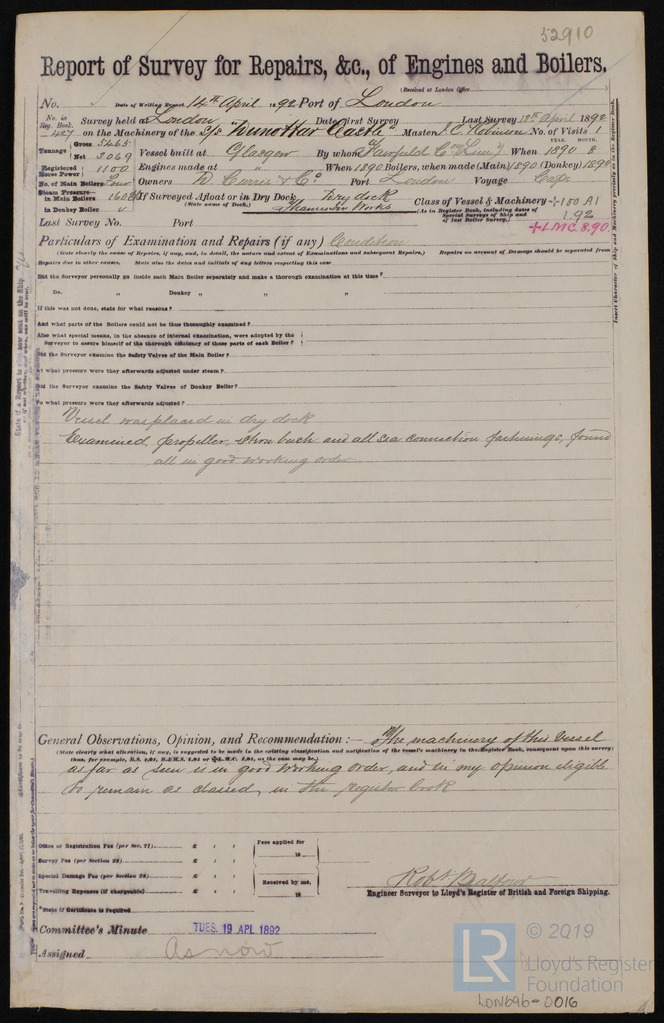 52910
Report of Survey for Repairs, &c., of Engines and Boilers.
(Received at London Office
No. Date of Writing Report 14th April 1892 Port of London
No. in Reg. Book. 427 Survey held at London Date, First Survey Last Survey 13th April 1892
on the Machinery of the S/S "Dunottar Castle" Master J. C. Robinson No. of Visits 1
Tonnage Gross 5465 Net 3069
Vessel built at Glasgow By whom Fairfield Co. Lim'd When YEAR. 1890 MONTH. 8
Registered Horse Power 1100 Engines made at " When 1890 Boilers, when made (Main) 1890 (Donkey) 1890
No. of Main Boilers Four Owners D. Currie & Co. Port London Voyage Cape
Steam Pressure in Main Boilers 160 If Surveyed Afloat or in Dry Dock Dry dock
(State name of Dock.) Thames Iron Works
in Donkey Boiler
Class of Vessel & Machinery +100 A1
(As in Register Book, including dates of Special Surveys of Ship and of last Boiler Survey.) 1.92
+LMC 8.90
Last Survey No. Port
Particulars of Examination and Repairs (if any) Condition
(State clearly the cause of Repairs, if any, and, in detail, the nature and extent of Examinations and subsequent Repairs.) Repairs on account of Damage should be separated from
Repairs due to other causes. State also the dates and initials of any letters respecting this case
Did the Surveyor personally go inside each Main Boiler separately and make a thorough examination at this time?
Do. " Donkey " " "
If this was not done, state for what reasons?
And what parts of the Boilers could not be thus thoroughly examined?
Also what special means, in the absence of internal examination, were adopted by the
Surveyor to assure himself of the thorough efficiency of those parts of each Boiler?
Did the Surveyor examine the Safety Valves of the Main Boiler?
At what pressure were they afterwards adjusted under steam?
Did the Surveyor examine the Safety Valves of Donkey Boiler?
To what pressure were they afterwards adjusted?
Vessel was placed in dry dock
Examined propeller, stern bush and all sea connection fastenings, found
all in good working order
General Observations, Opinion, and Recommendation :— The machinery of this vessel
(State clearly what alteration, if any, is suggested to be made in the existing classification and notification of the vessel's machinery in the Register Book, consequent upon this survey:
thus, for example, B.S. 1,91, B.& M.S. 1,91 or +L.M.C. 1,91, as the case may be.)
as far as seen is in good working order, and in my opinion eligible
to remain as classed, in the register book
Office or Registration Fee (per Sec. 27) £ : :
Fees applied for
18
Survey Fee (per Section 28) £ : :
Special Damage Fee (per Section 28) £ : :
Received by me,
18
Travelling Expenses (if chargeable) £ : :
Robt Balfour
Engineer Surveyor to Lloyd's Register of British and Foreign Shipping.
*State if Certificate is required
Committee's Minute TUES. 19 APL 1892
Assigned As now
© 2019
LR
Lloyd's Register
Foundation
LON696-0016